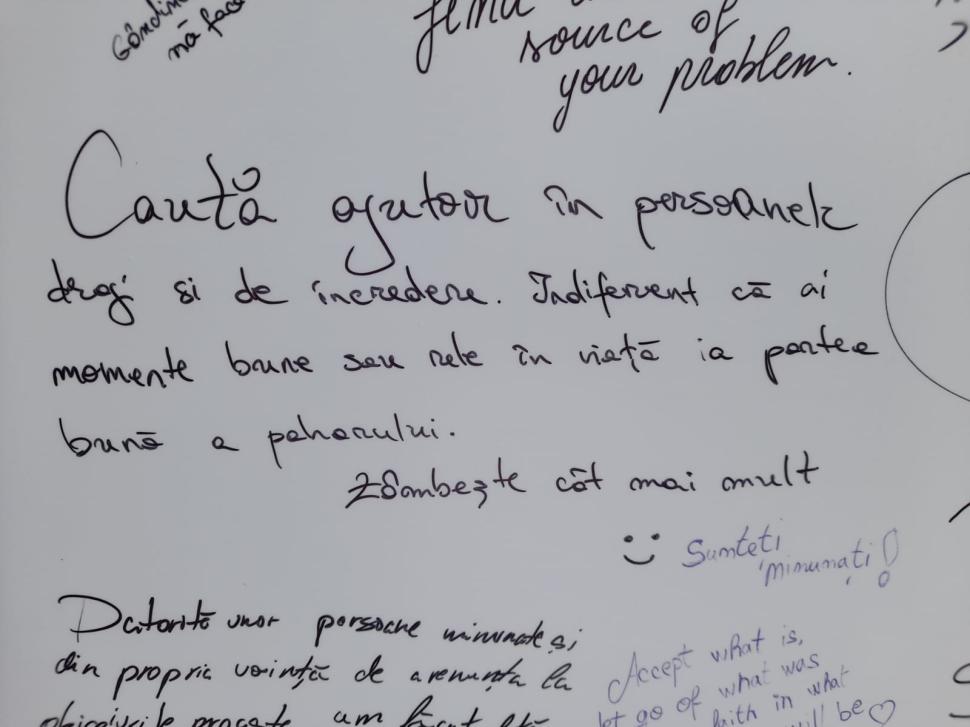 nă fac
source of
your problem.
Caută ajutor în persoanele
dragi si de incredere. Indiferent că ai
momente bune sau rele în viață ia partea
bună a paharului.
Zâmbește cât mai mult
Sunteti
minunați!
Datorită unor persoane minunate și
din propria voință de a renunța la
Accept what is,
let go of what was
faith in what
will be ♡